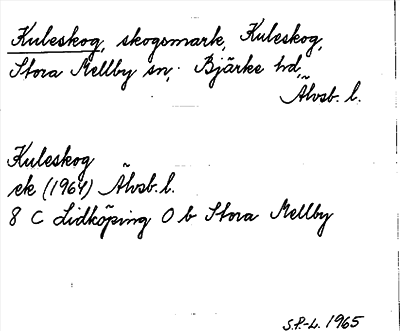 Kuleskog, skogsmark, Kuleskog,
Stora Mellby sn, Bjärke hd,
Älvsb. l.
Kuleskog
ek (1964) Älvsb. l.
8 C Lidköping 0 b Stora Mellby
S.P.-L. 1965